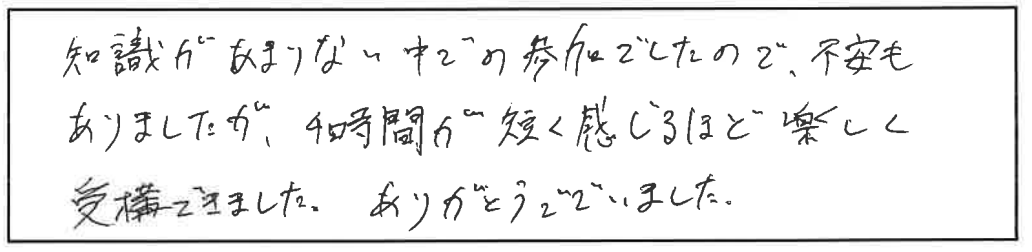 知識があまりない中での参加でしたので、不安も
ありましたが、4時間が短く感じるほど楽しく
受構できました。 ありがとうございました。